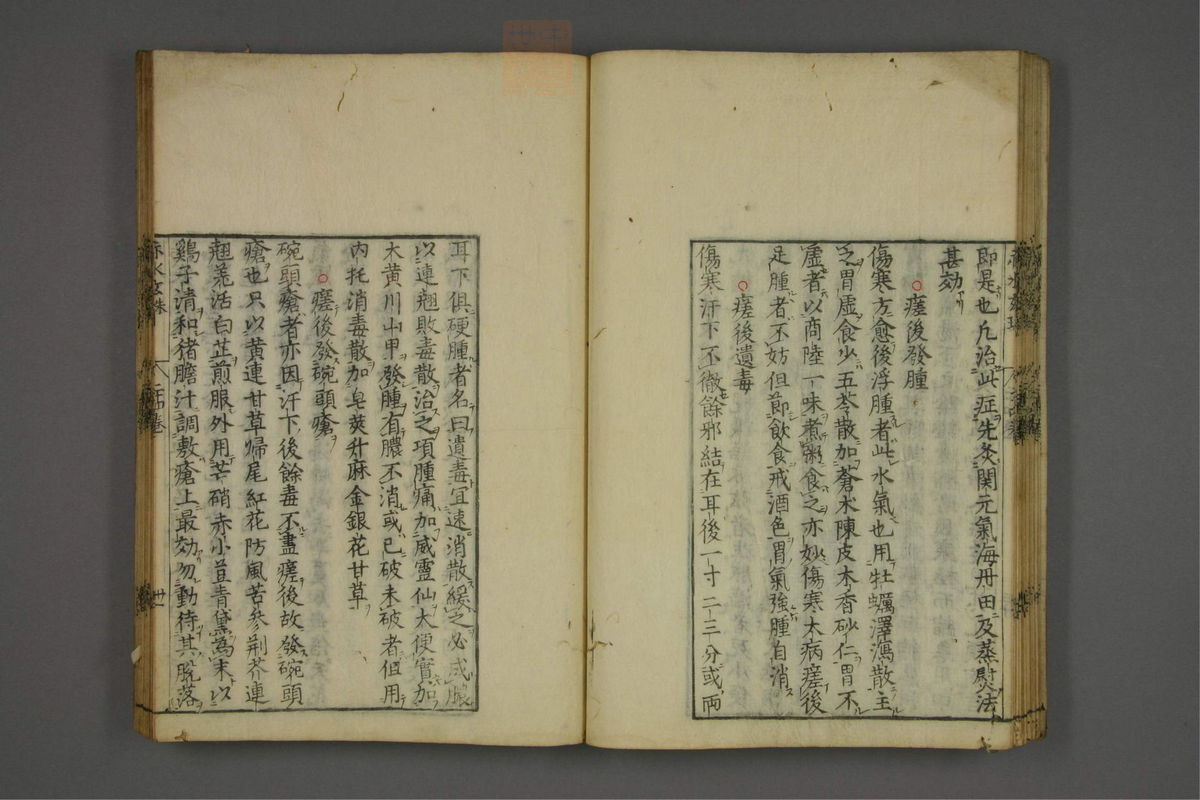 即是也凡治此症先灸関元氣海丹田及蒸熨法
甚効
瘥後發腫
傷寒方愈後浮腫者此水氣也用牡蠣澤瀉散主
之胃虛食少五苓散加蒼朮陳皮木香砂仁胃不
虛者以商陸一味煮粥食之亦妙傷寒大病瘥後
足腫者不妨但節飲食戒酒色胃氣強腫自消
瘥後遺毒
傷寒汗下不徹餘邪結在耳後一寸二三分或兩
耳下俱硬腫者名曰遺毒宜速消散緩之必成膿
以連翹敗毒散治之項腫痛加威靈仙大便實加
大黃川山甲發腫有膿不消或已破未破者但用
內托消毒散加皂莢升麻金銀花甘草
瘥後發碗頭瘡
碗頭瘡者亦因汗下後餘毒不盡瘥後故發碗頭
瘡也只以黃連甘草帰尾紅花防風苦參荆芥連
翹羌活白芷煎服外用芒硝赤小荳青黛為末以
鷄子清和猪膽汁調敷瘡上最効勿動待其脫落
赤水玄珠